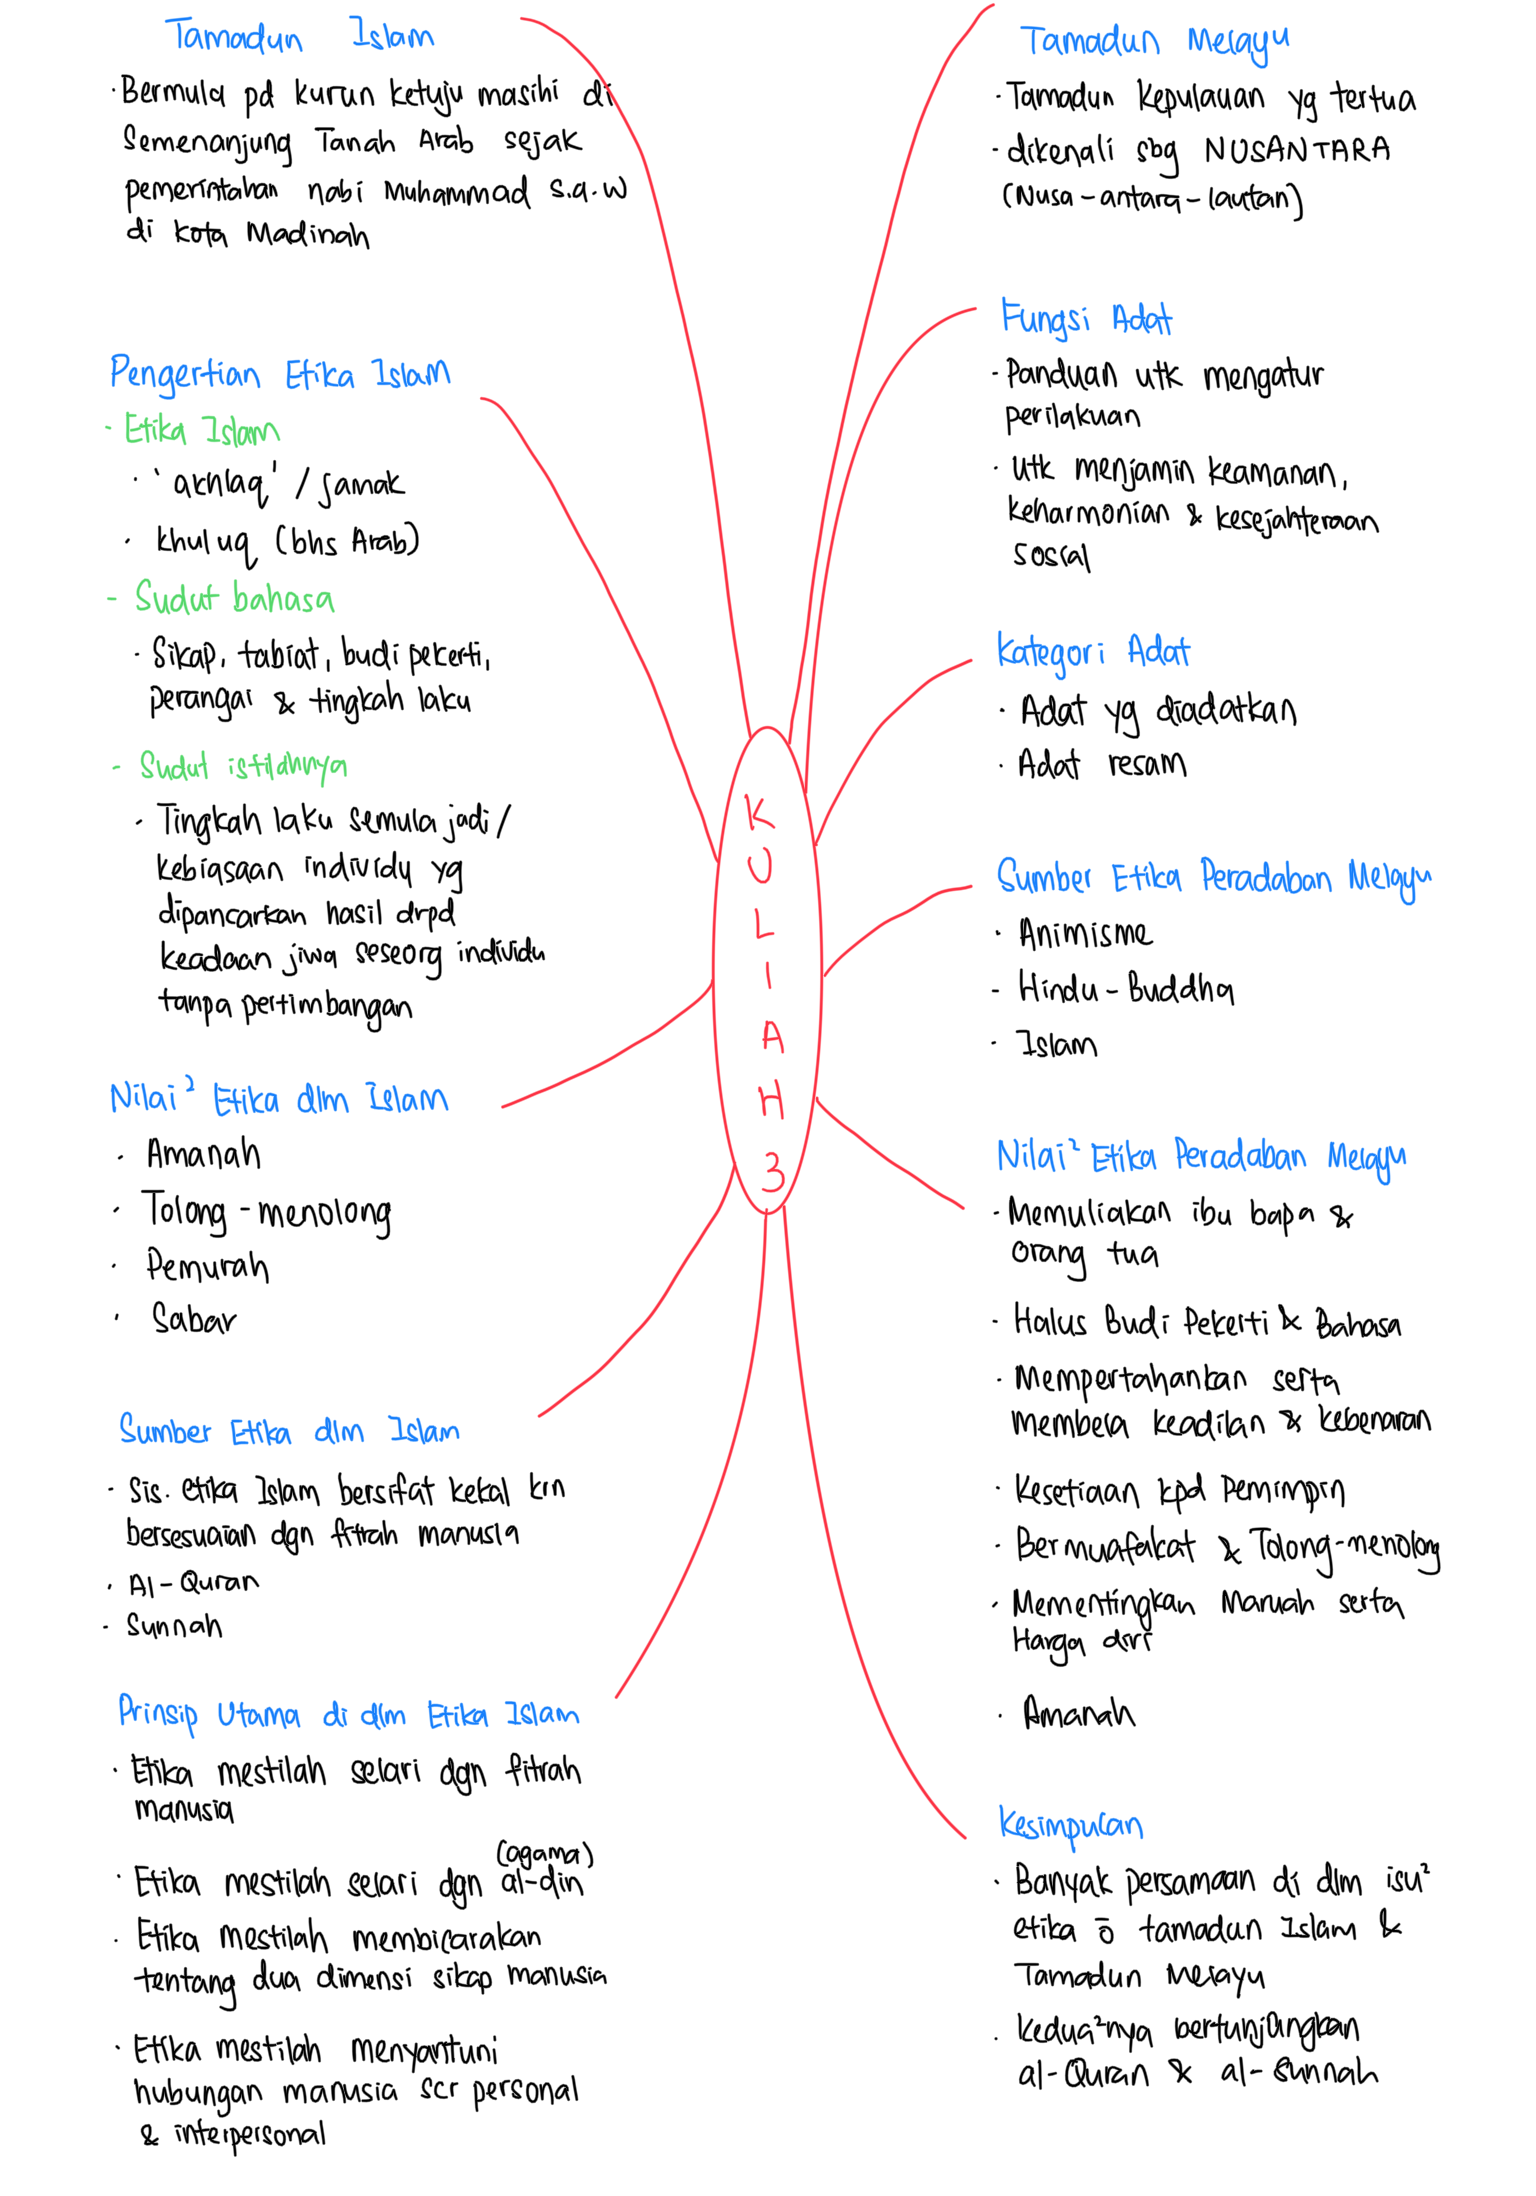 Tamadun Islam
· Bermula pd kurun ketuju masihi di
Semenanjung Tanah Arab sejak
pemerintahan nabi Muhammad s.a.w
di kota Madinah
Pengertian Etika Islam
- Etika Islam
· 'akhlaq' / jamak
· khuluq (bhs Arab)
- Sudut bahasa
· Sikap, tabiat, budi pekerti,
perangai & tingkah laku
- Sudut istilahnya
· Tingkah laku semula jadi /
kebiasaan individu yg
dipancarkan hasil drpd
keadaan jiwa seseorg individu
tanpa pertimbangan
Nilai² Etika dlm Islam
· Amanah
· Tolong-menolong
· Pemurah
· Sabar
Sumber Etika dlm Islam
· Sis. etika Islam bersifat kekal krn
bersesuaian dgn fitrah manusia
· Al-Quran
· Sunnah
Prinsip Utama di dlm Etika Islam
· Etika mestilah selari dgn fitrah
manusia
(agama)
· Etika mestilah selari dgn al-din
· Etika mestilah membicarakan
tentang dua dimensi sikap manusia
· Etika mestilah menyantuni
hubungan manusia scr personal
& interpersonal
KULIAH 3
Tamadun Melayu
· Tamadun Kepulauan yg tertua
· dikenali sbg NUSANTARA
(Nusa-antara-lautan)
Fungsi Adat
· Panduan utk mengatur
perilakuan
· utk menjamin keamanan,
keharmonian & kesejahteraan
sosial
Kategori Adat
· Adat yg diadatkan
· Adat resam
Sumber Etika Peradaban Melayu
· Animisme
- Hindu-Buddha
· Islam
Nilai² Etika Peradaban Melayu
· Memuliakan ibu bapa &
orang tua
· Halus Budi Pekerti & Bahasa
· Mempertahankan serta
membela keadilan & kebenaran
· Kesetiaan kpd Pemimpin
· Bermuafakat & Tolong-menolong
· Mementingkan Maruah serta
Harga diri
· Amanah
Kesimpulan
· Banyak persamaan di dlm isu²
etika ō tamadun Islam &
Tamadun Melayu
· kedua²nya bertunjangkan
al-Quran & al-Sunnah